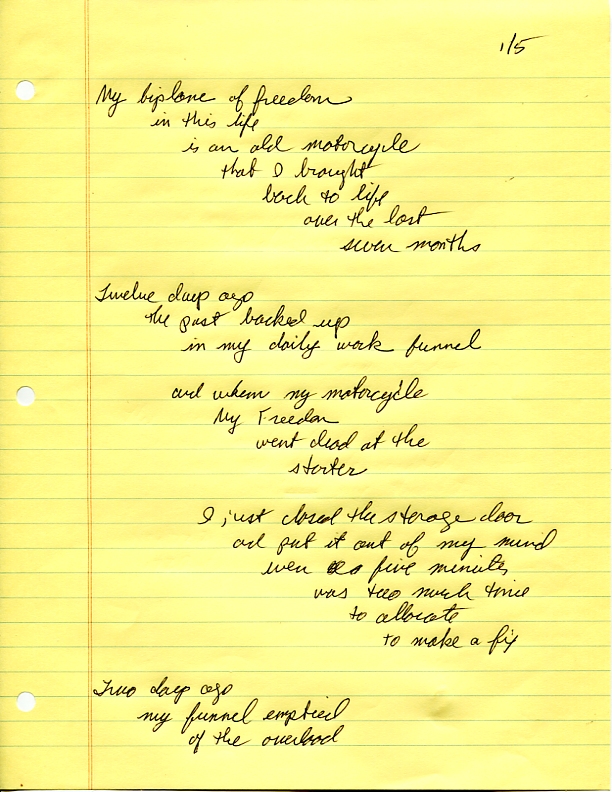 1/5
My biplane of freedom
in this life
is an old motorcycle
that I brought
back to life
over the last
seven months
Twelve days ago
the past backed up
in my daily work funnel
and when my motorcycle
My Freedom
went dead at the
starter
I just closed the storage door
and put it out of my mind
even five minutes
was too much time
to allocate
to make a fix
Two days ago
my funnel emptied
of the overload